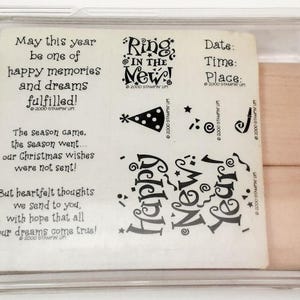 May this year
be one of
happy memories
and dreams
fulfilled!
© 2000 STAMPIN' UP!
The season came,
the season went...
our Christmas wishes
were not sent!
But heartfelt thoughts
we send to you,
with hope that all
our dreams come true!
© 2000 STAMPIN' UP!
Ring
IN THE
New!
© 2000 STAMPIN' UP!
Date:
Time:
Place:
© 2000 STAMPIN' UP!
© 2000 STAMPIN' UP!
© 2000 STAMPIN' UP!
Happy
New
Year!
© 2000 STAMPIN' UP!